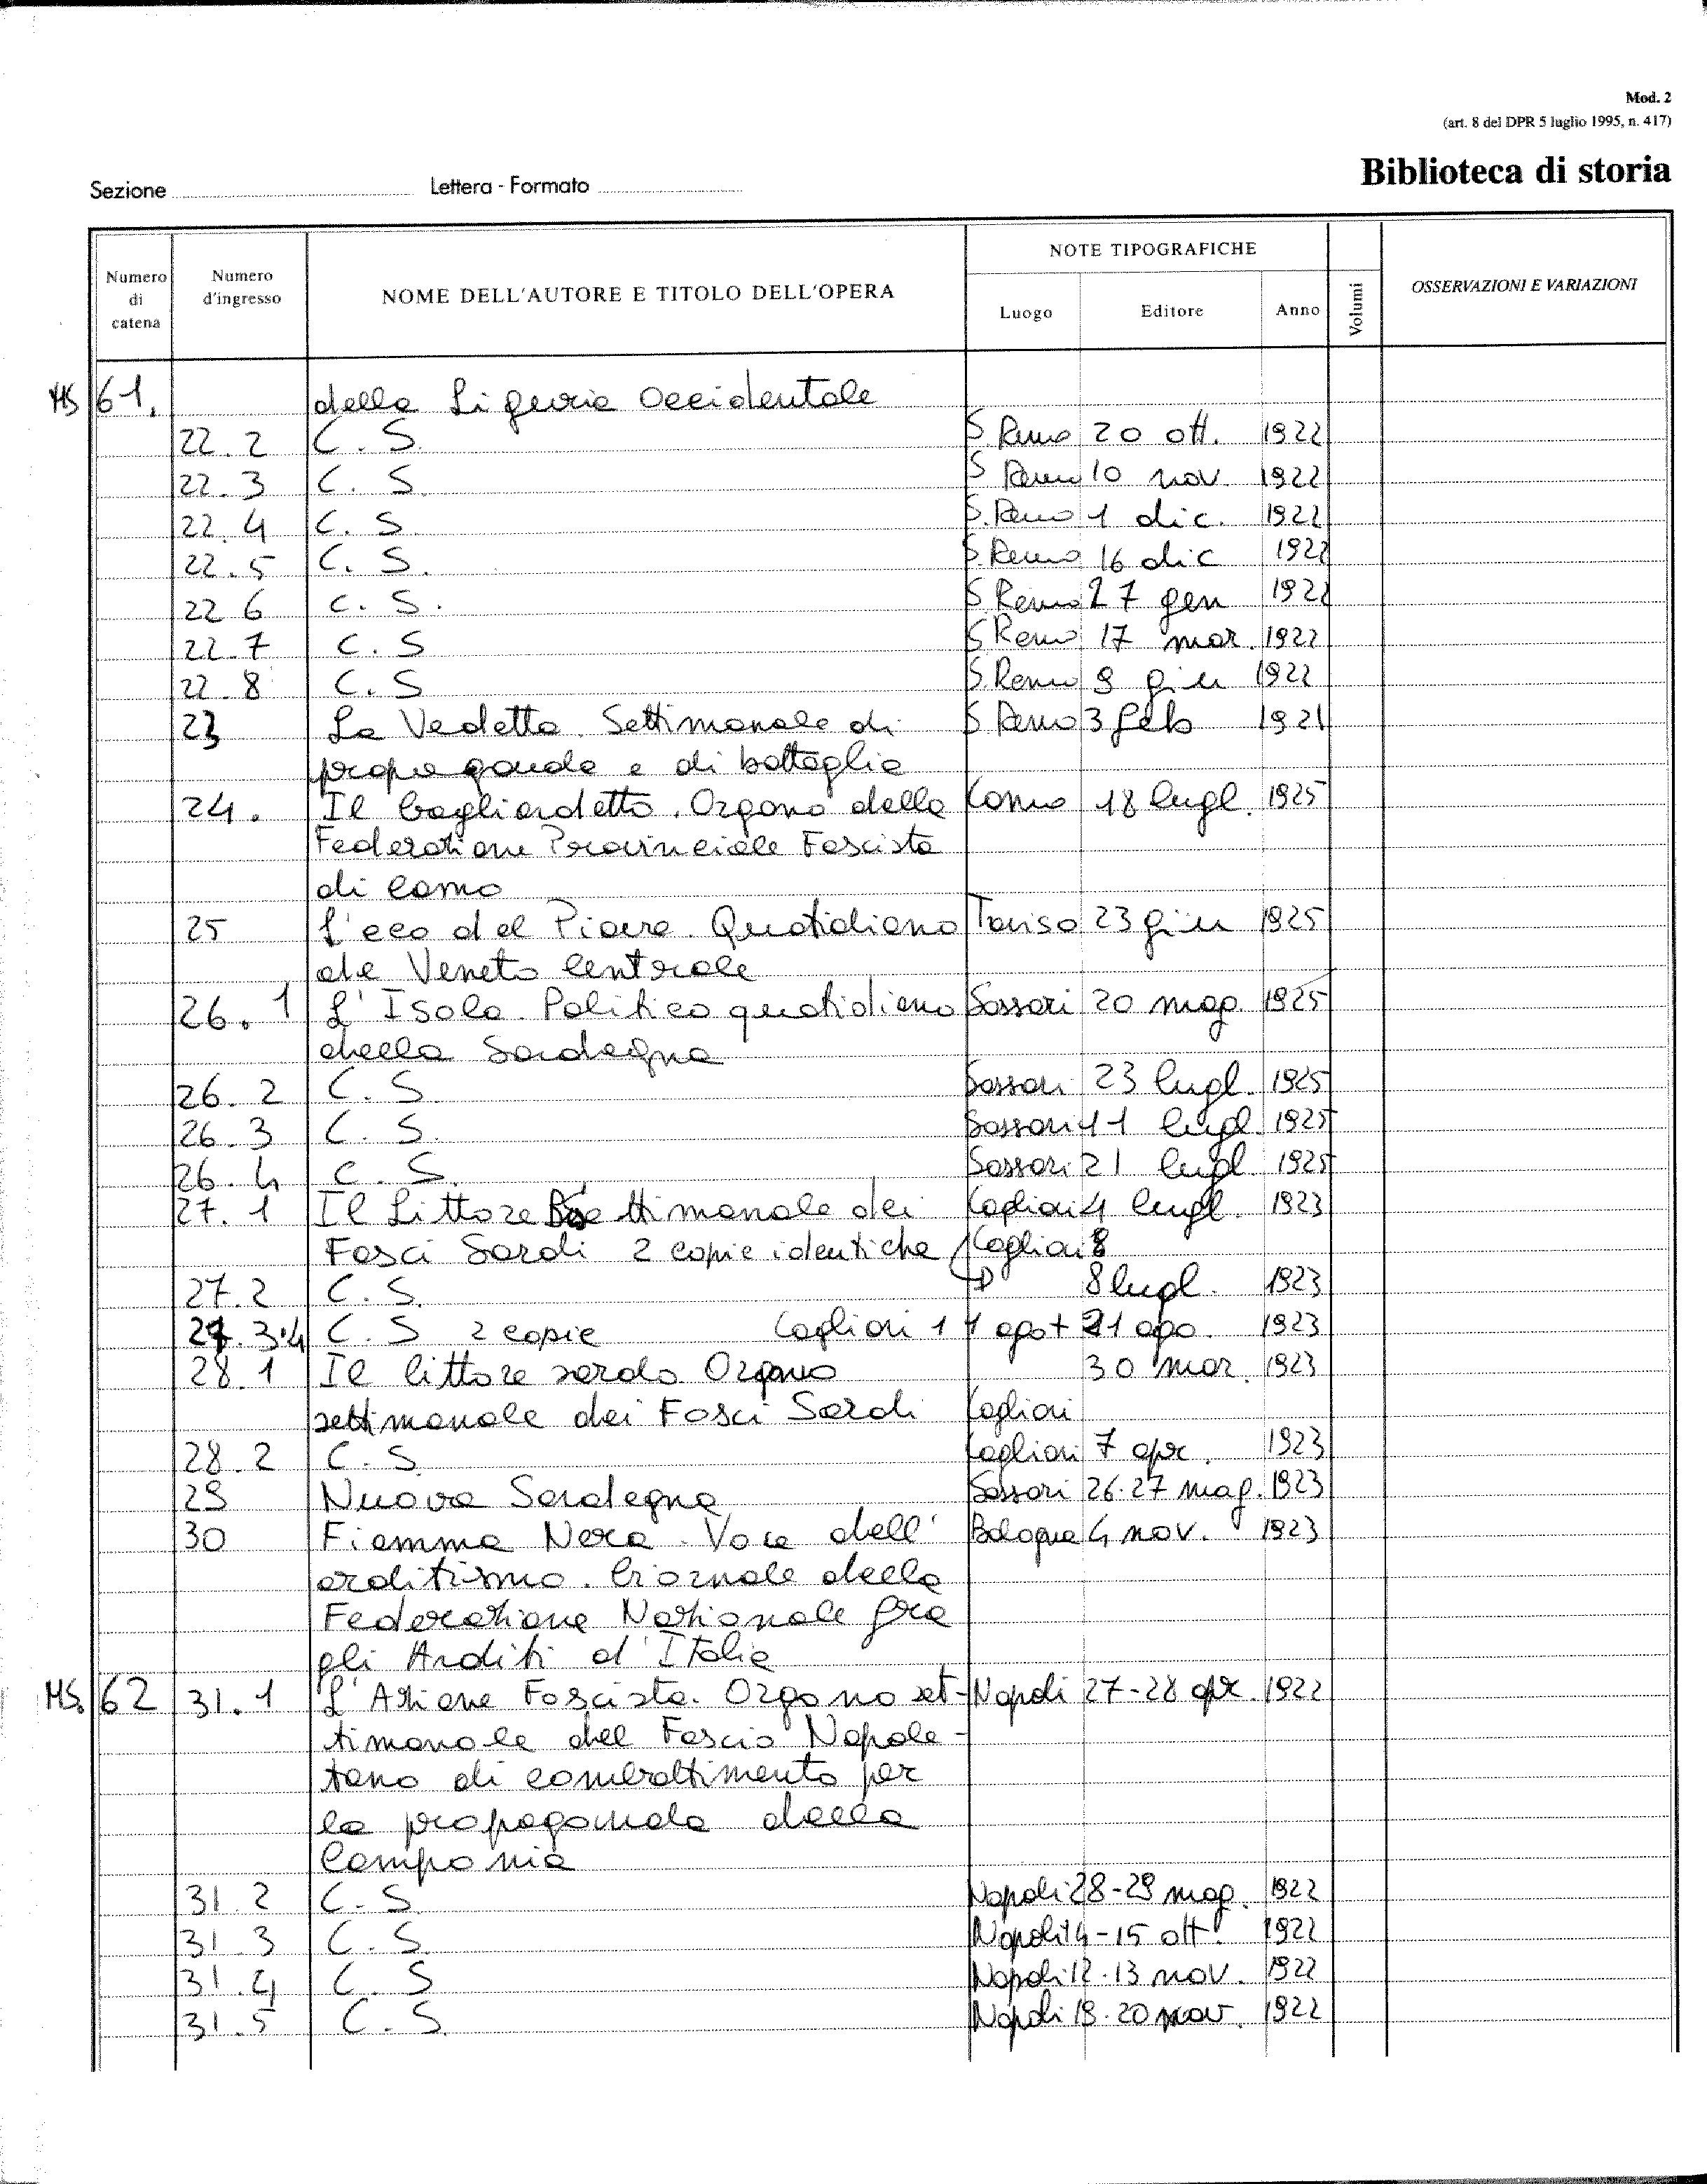 Mod. 2
(art. 8 del DPR 5 luglio 1995, n. 417)
Biblioteca di storia
Sezione Lettera - Formato
Numero di catena
Numero d'ingresso
NOME DELL'AUTORE E TITOLO DELL'OPERA
NOTE TIPOGRAFICHE
Luogo Editore Anno
Volumi
OSSERVAZIONI E VARIAZIONI
MS 61. della Liguria Occidentale
22.2 C. S. S. Remo 20 ott. 1922
22.3 C. S. S Remo 10 nov. 1922
22.4 C. S. S. Remo 1 dic. 1922
22.5 C. S. S. Remo 16 dic 1922
22 6 C. S. S. Remo 27 gen 1922
22.7 C. S S Remo 17 mar. 1922
22.8 C. S S. Remo 9 giu 1922
23 La Vedetta. Settimanale di S Remo 3 feb 1921
propaganda e di battaglia
24. Il Gagliardetto. Organo della Como 18 lugl. 1925
Federazione Provinciale Fascista
di Como
25 L'eco del Piave. Quotidiano 23 giu 1925
de Veneto Centrale
26.1 L'Isola. Politico quotidiano Sassari 20 mag. 1925
della Sardegna
26.2 C. S. Sassari 23 lugl. 1925
26.3 C. S. Sassari 11 lugl. 1925
26.4 C. S. Sassari 21 lugl. 1925
27.1 Il Littore Settimanale dei Cagliari 4 lugl. 1923
Fasci Sardi 2 copie identiche Cagliari 8
27.2 C. S. 8 lugl. 1923
27.3.4 C. S 2 copie Cagliari 11 ago + 21 ago. 1923
28.1 Il littore sardo Organo 30 mar. 1923
settimanale dei Fasci Sardi Cagliari
28.2 C. S. Cagliari 7 apr. 1923
29 Nuova Sardegna Sassari 26.27 mag. 1923
30 Fiamma Nera. Voce dell' Bologna 4 nov. 1923
arditismo. Giornale della
Federazione Nazionale fra
gli Arditi d'Italia
MS. 62 31.1 L'Azione Fascista. Organo set- Napoli 27-28 apr. 1922
timanale del Fascio Napole-
tano di combattimento per
la propaganda della
Campania
31.2 C. S. Napoli 28-29 mag. 1922
31.3 C. S. Napoli 14-15 ott. 1922
31.4 C. S Napoli 12.13 nov. 1922
31.5 C. S. Napoli 19.20 nov. 1922